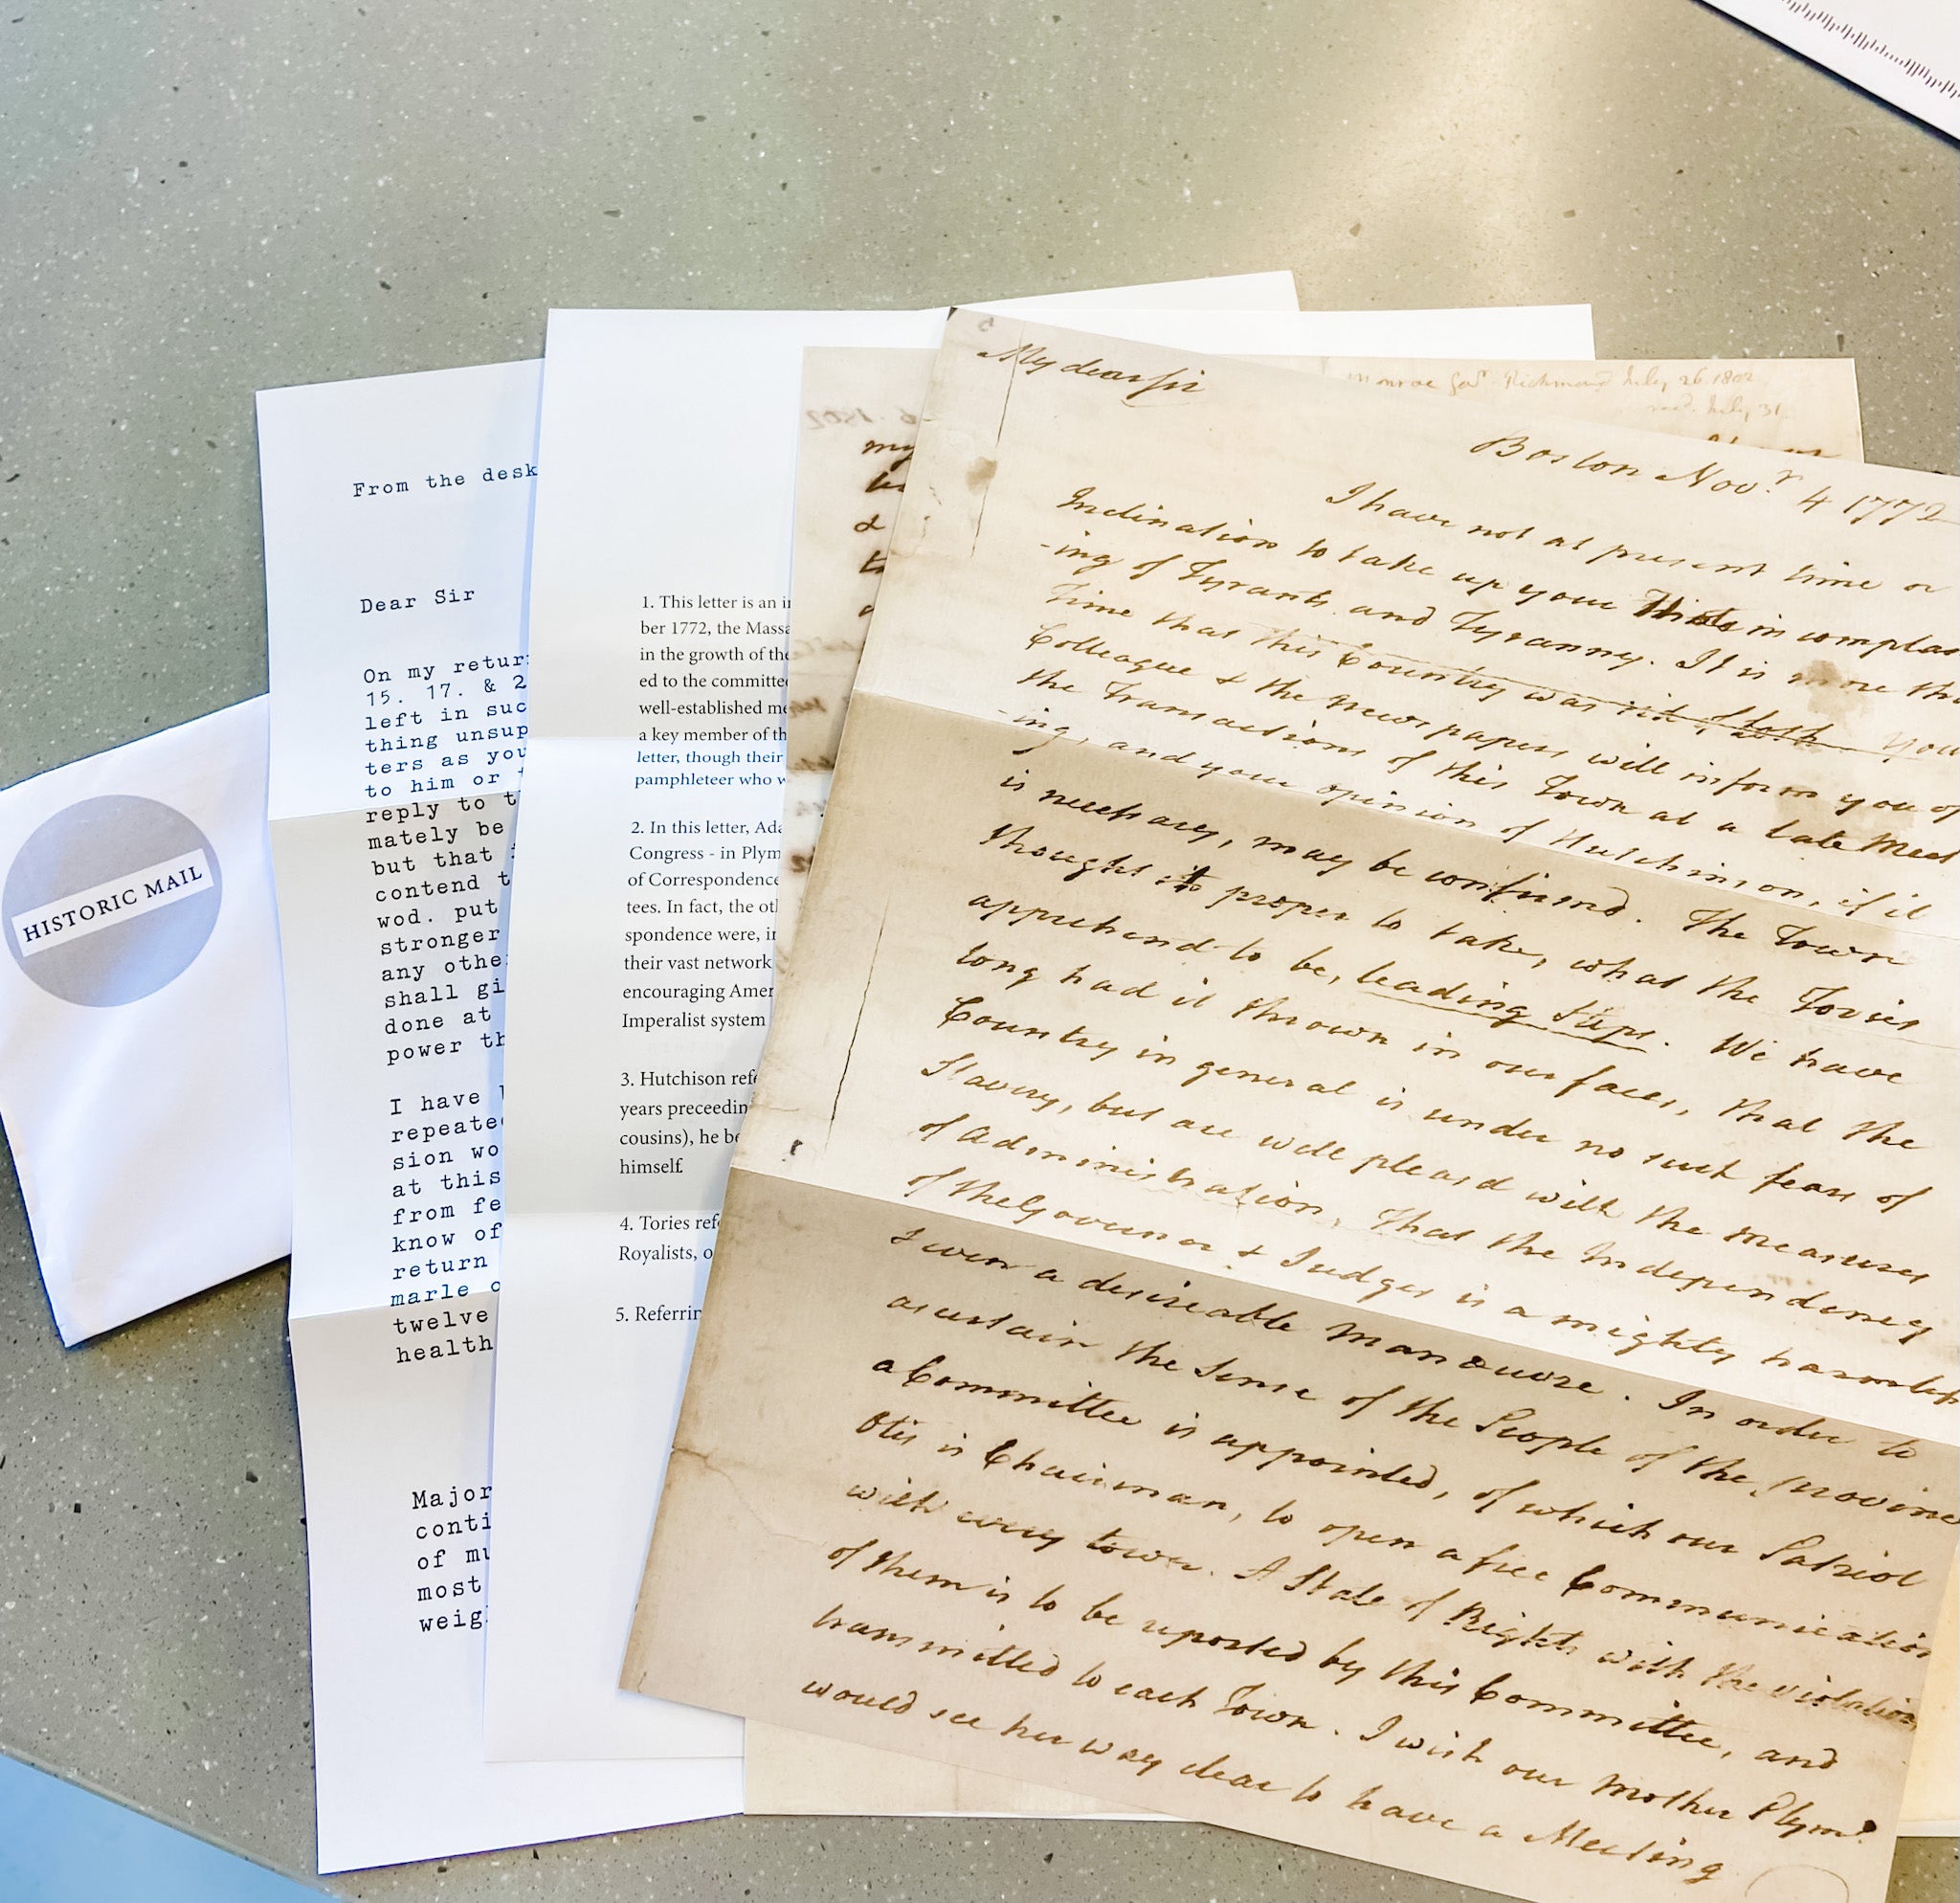 HISTORIC MAIL
From the desk
Dear Sir
On my retur
15. 17. & 2
left in suc
thing unsup
ters as you
to him or t
reply to t
mately be
but that
contend t
wod. put
stronger
any othe
shall gi
done at
power th
I have
repeate
sion wo
at this
from fe
know of
return
marle o
twelve
health
Major
conti
of mu
most
weig
1. This letter is an i
ber 1772, the Massa
in the growth of the
ed to the committe
well-established me
a key member of th
letter, though their
pamphleteer who w
2. In this letter, Ada
Congress - in Plym
of Correspondence
tees. In fact, the oth
spondence were, in
their vast network
encouraging Amer
Imperalist system
3. Hutchison refe
years preceedin
cousins), he be
himself.
4. Tories refe
Royalists, o
5. Referrin
my
&
Monroe Gov. Richmond July 26. 1802
recd. July 31
My dear Sir
Boston Nov.r 4 1772
I have not at present time or
Inclination to take up your in complai
-ing of Tyrants and Tyranny. It is more tha
Time that this Country was rid of both You
Colleague & the News papers will inform you of
the Transactions of this Town at a late Meet
-ing, and your opinion of Hutchinson, if it
is necessary, may be confirmd. The Town
thought it proper to take, what the Tories
apprehend to be, leading Steps. We have
long had it thrown in our faces, that the
Country in general is under no such fears of
Slavery, but are well pleasd with the measures
of Administration, that the Independency
of the Governor & Judges is a mighty harmless
& even a desireable Manouvre. In order to
ascertain the Sense of the People of the Province
a Committee is appointed, of which our Patriot
Otis is Chairman, to open a free Communication
with every town. A State of Rights with the violation
of them is to be reported by this Committee, and
transmitted to each Town. I wish our Mother Plym.o
would see her way clear to have a Meeting